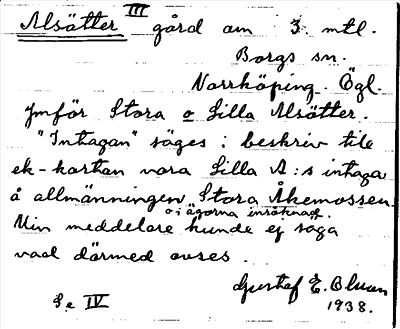 Alsätter III gård om 3 mtl.
Borgs sn.
Norrköping. Ögl.
Jmför Stora o Lilla Alsätter.
"Intagan" säges i beskriv till
ek-kartan vara Lilla A:s intaga
å allmänningen Stora Åkemossen
o i ägorna inräknad.
Min meddelare kunde ej säga
vad därmed avses.
Gustaf E. Bluun
Se IV
1938.